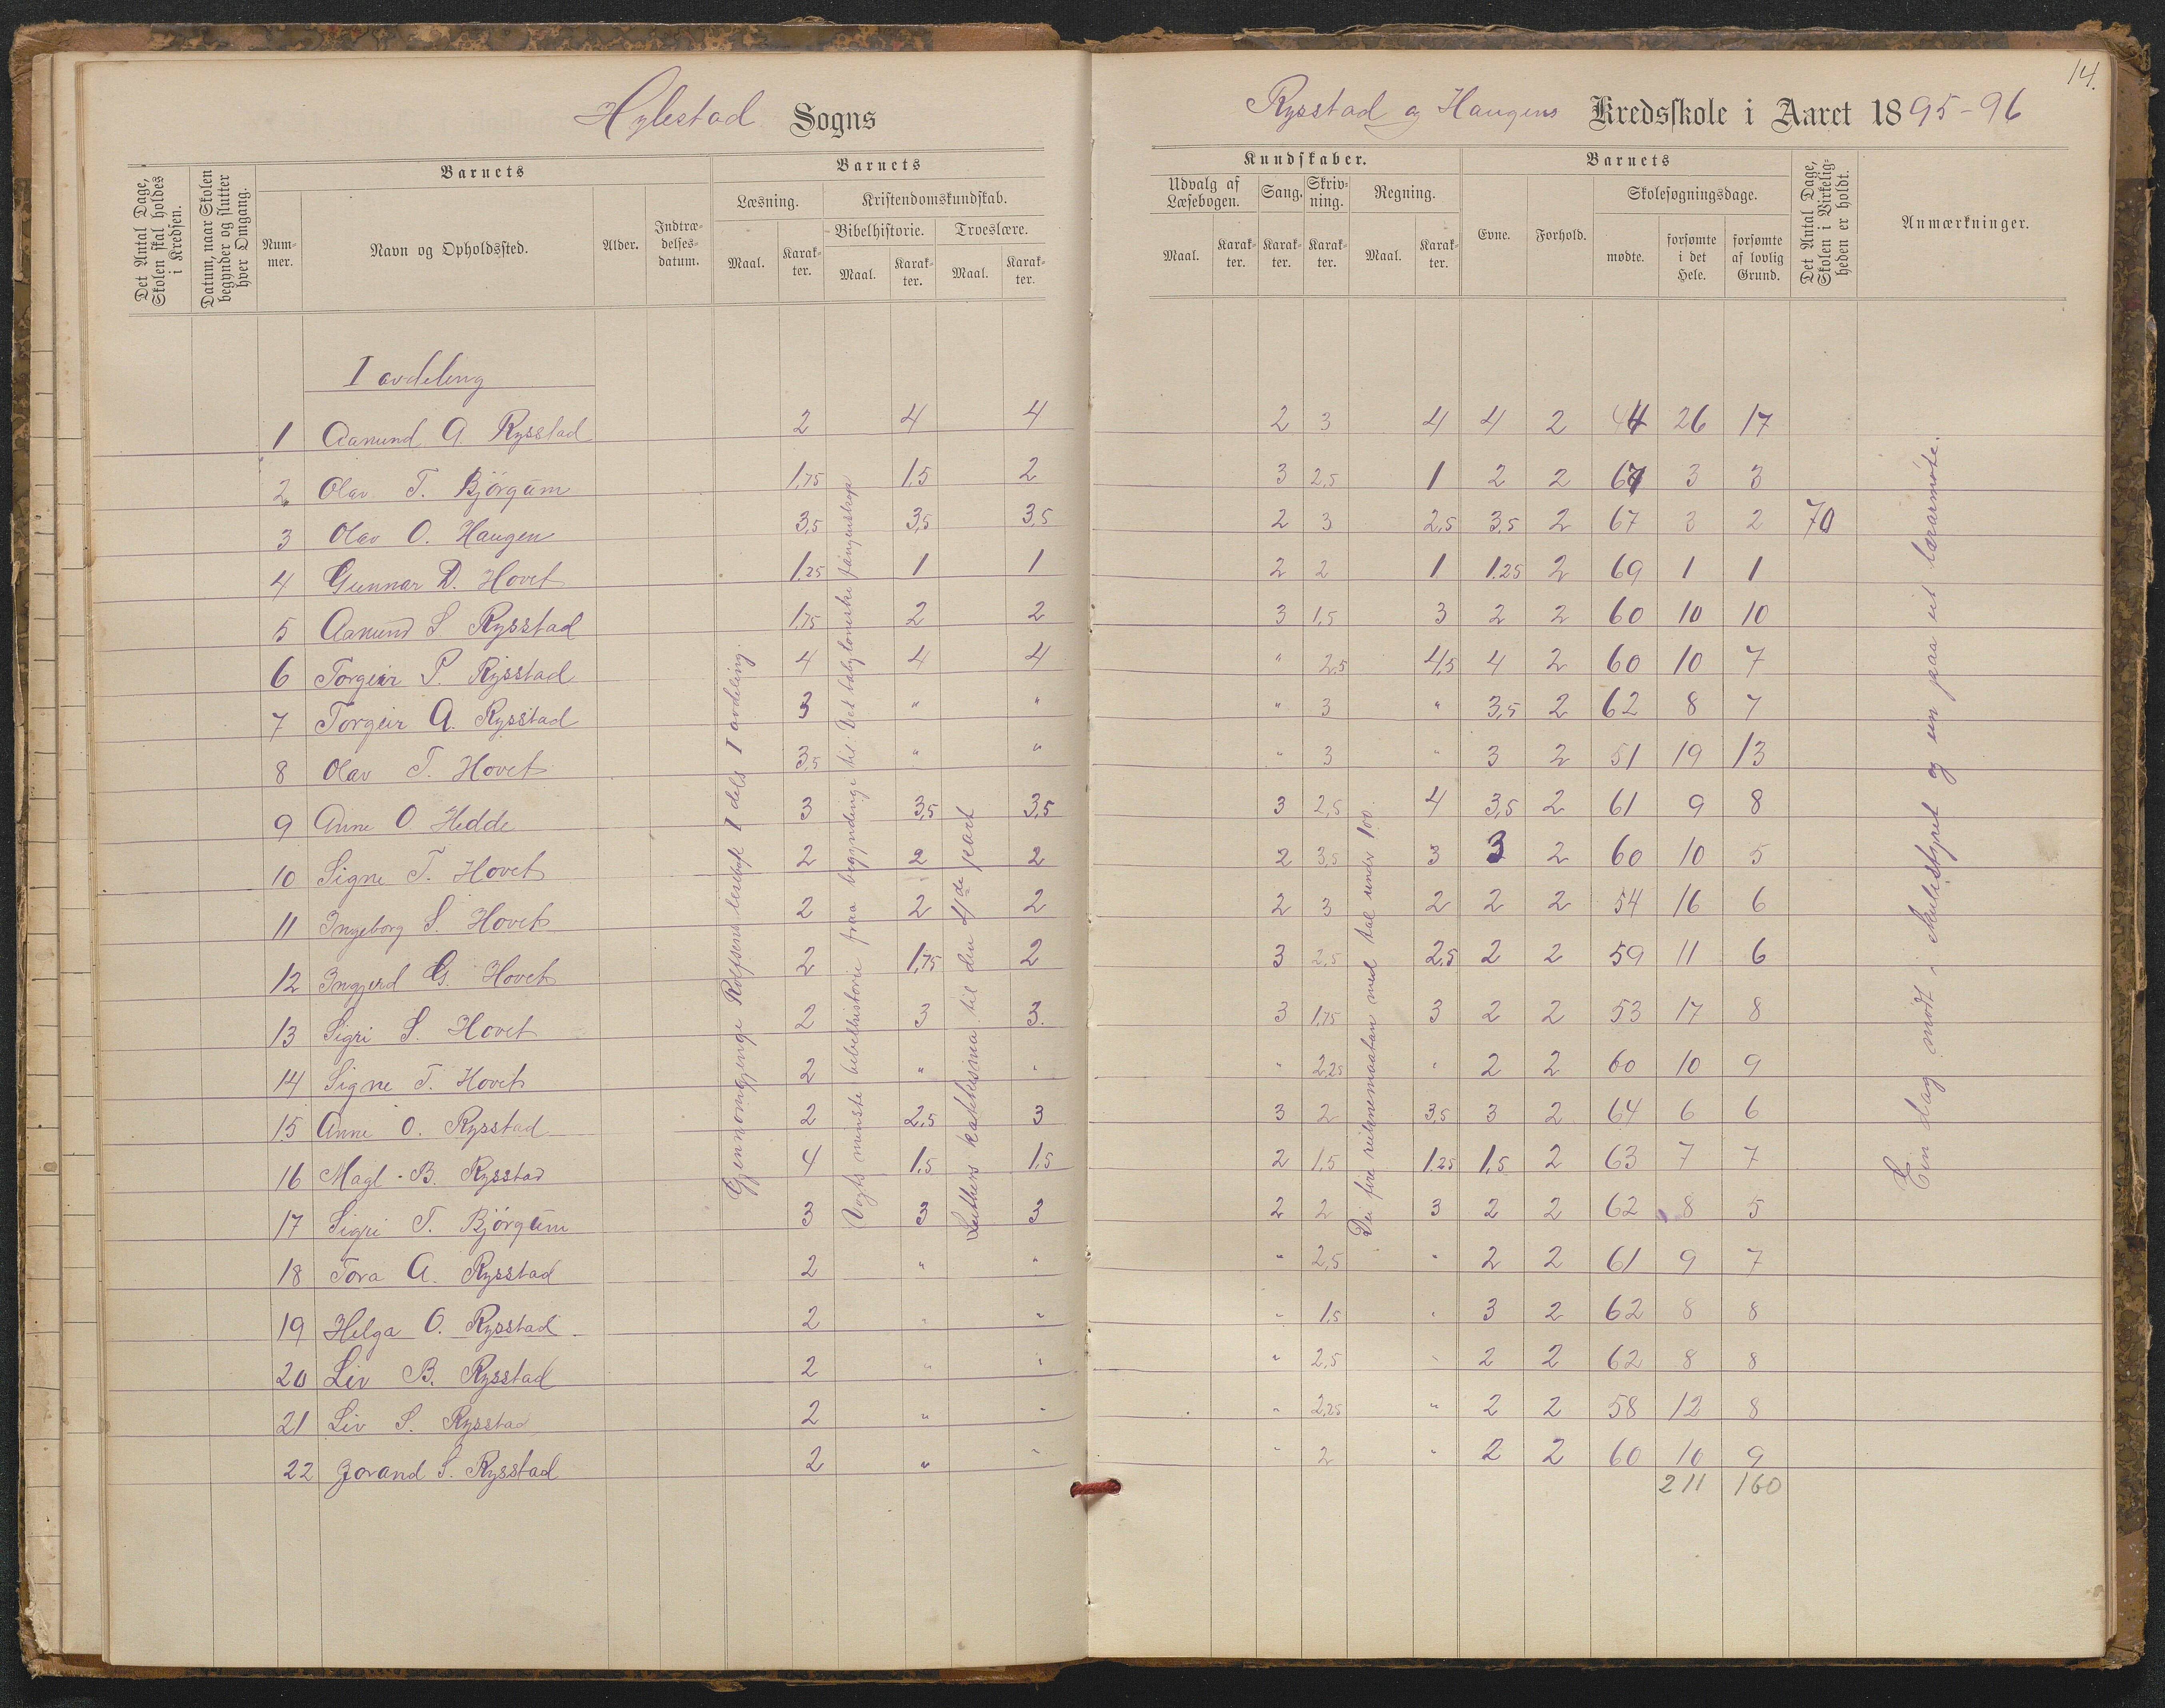 14.
Hylestad Sogns
Rysstad og Haugens Kredsskole i Aaret 1895-96
Det Antal Dage, Skolen skal holdes i Kredsen.
Datum, naar Skolen begynder og slutter hver Omgang.
Barnets
Num-mer.
Navn og Opholdssted.
Alder.
Indtræ-delses-datum.
Barnets
Læsning.
Maal.
Karak-ter.
Kristendomskundskab.
Bibelhistorie.
Maal.
Karak-ter.
Troeslære.
Maal.
Karak-ter.
Kundskaber.
Udvalg af Læsebogen.
Maal.
Karak-ter.
Sang.
Karak-ter.
Skriv-ning.
Karak-ter.
Regning.
Maal.
Karak-ter.
Barnets
Evne.
Forhold.
Skolesøgningsdage.
mødte.
forsømte i det Hele.
forsømte af lovlig Grund.
Det Antal Dage, Skolen i Virkelig-heden er holdt.
Anmærkninger.
I avdeling
1 Aanund A Rysstad 2 4 4 2 3 4 4 2 44 26 17
2 Olav T. Bjørgum 1,75 1,5 2 3 2,5 1 2 2 67 3 3
3 Olav O. Haugen 3,5 3,5 3,5 2 3 2,5 3,5 2 67 3 2 70
4 Gunnar D. Hovet 1,25 1 1 2 2 1 1,25 2 69 1 1
5 Aanund S Rysstad 1,75 2 2 3 1,5 3 2 2 60 10 10
6 Torgeir P. Rysstad 4 4 4 " 2,5 4,5 4 2 60 10 7
7 Torgeir A. Rysstad 3 " " " 3 " 3,5 2 62 8 7
8 Olav T. Hovet 3,5 " " " 3 " 3 2 51 19 13
9 Anne O. Hedde 3 3,5 3,5 3 2,5 4 3,5 2 61 9 8
10 Signe T. Hovet 2 2 2 2 3,5 3 3 2 60 10 5
11 Ingeborg S. Hovet 2 2 2 2 3 2 2 2 54 16 6
12 Ingjerd G. Hovet 2 1,75 2 3 2,5 2,5 2 2 59 11 6
13 Sigri S. Hovet 2 3 3. 3 1,75 3 2 2 53 17 8
14 Signe T. Hovet 2 " " " 2,25 " 2 2 60 10 9
15 Anne O. Rysstad 2 2,5 3 3 2 3,5 3 2 64 6 6
16 Magl. B. Rysstad 4 1,5 1,5 2 1,5 1,25 1,5 2 63 7 7
17 Sigri T. Bjørgum 3 3 3 2 2 3 2 2 62 8 5
18 Tora A. Rysstad 2 " " " 2,5 " 2 2 61 9 7
19 Helga O. Rysstad 2 " " " 1,5 " 3 2 62 8 8
20 Liv B. Rysstad 2 " " " 2,5 " 2 2 62 8 8
21 Liv S. Rysstad 2 " " " 2,25 " 2 2 58 12 8
22 Jorand S. Rysstad 2 " " " 2 " 2 2 60 10 9
211 160
Gjennomgjenge Rolfsens lesebok I dels I avdeling.
Vogts minste bibelhistorie fraa begyndinga til: Det babyloneske fangenskap
Luthers katekisma til den 4de part
Dei fire reiknemaatan med tal under 100.
Ein dag møtt i skulestyret og ein paa eit lærarmøte.